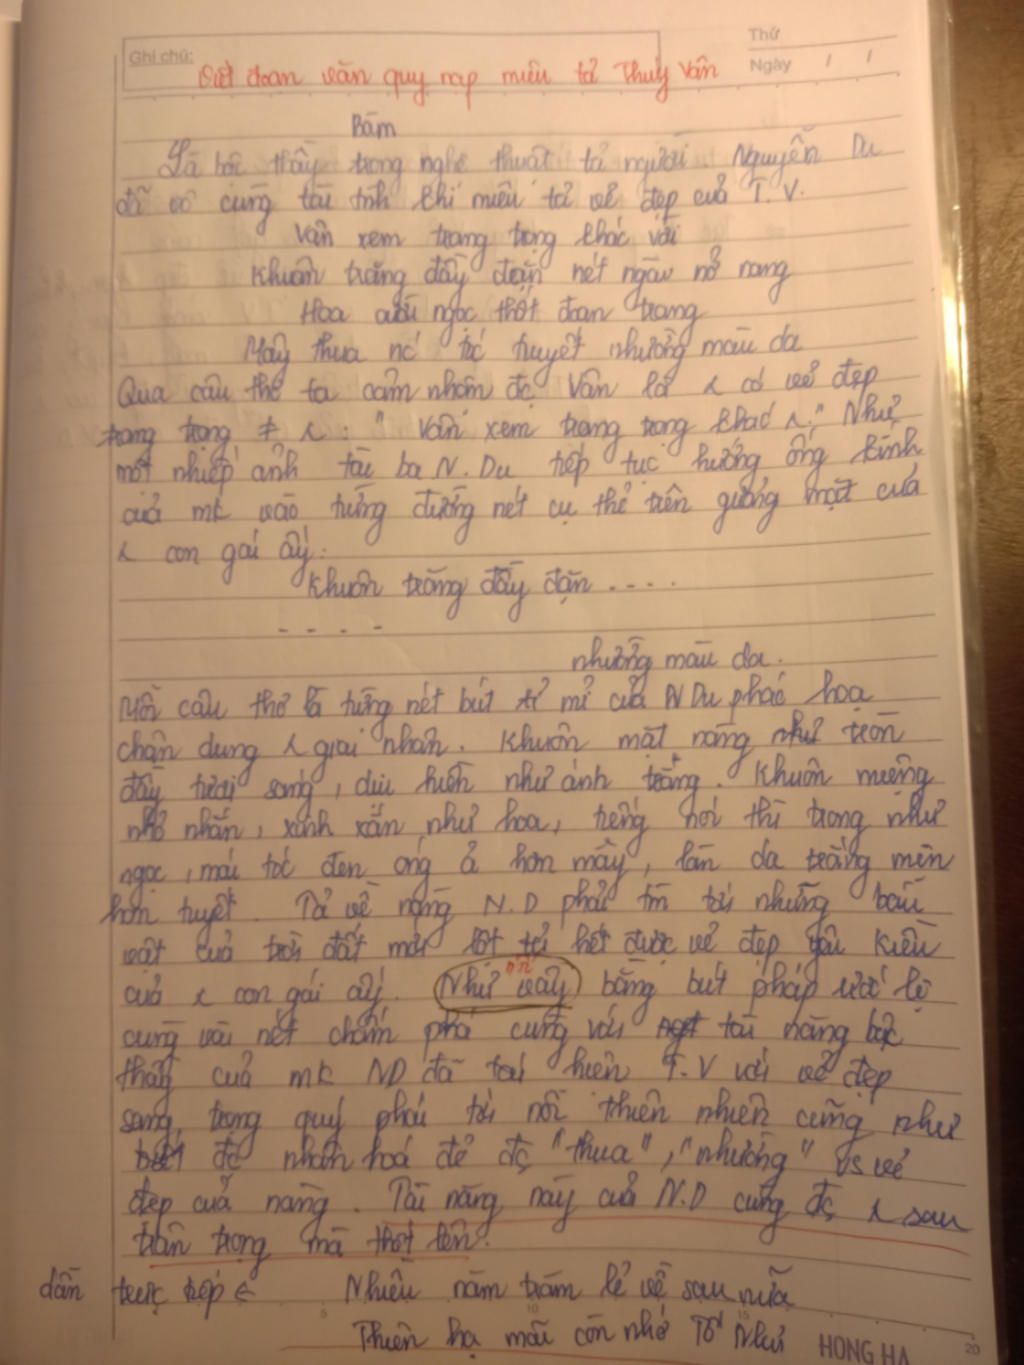 Ghi chú:
Thứ
Ngày / /
Viết đoạn văn quy nạp miêu tả Thúy Vân
Bấm
Là bậc thầy trong nghệ thuật tả người Nguyễn Du
đã vô cùng tài tình khi miêu tả vẻ đẹp của T.V.
Vân xem trang trọng khác vời
Khuôn trăng đầy đặn nét ngài nở nang
Hoa cười ngọc thốt đoan trang
Mây thua nước tóc tuyết nhường màu da
Qua câu thơ ta cảm nhận đc Vân là 1 cô vẻ đẹp
trang trọng ≠ : " Vân xem trang trọng khác ". Như
một nhiếp ảnh tài ba N.Du tiếp tục hướng ống kính
của mk vào từng đường nét cụ thể trên gương mặt của
con gái ấy:
Khuôn trăng đầy đặn ....
- - - -
nhường màu da.
Mỗi câu thơ là từng nét bút tỉ mỉ của N Du phác hoạ
chân dung giai nhân. Khuôn mặt nàng như tròn
đầy tươi sáng, dịu hiền như ánh trăng. Khuôn miệng
nhỏ nhắn, xinh xắn như hoa, tiếng nói thì trong như
ngọc, mái tóc đen óng ả hơn mây, làn da trắng mịn
hơn tuyết. Tả về nàng N.D phải tìm tới những báu
vật của trời đất mới lột tả hết được vẻ đẹp yêu kiều
của con gái ấy. Như vậy bằng bút pháp ước lệ
cùng vài nét chấm phá cùng với tài năng bậc
thầy của mk ND đã tái hiện T.V với vẻ đẹp
sang trọng quý phái tới nỗi thiên nhiên cũng như
đc nhân hoá để đc "thua", "nhường" vs vẻ
đẹp của nàng. Tài năng này của N.D cũng đc sau
trân trọng mà thốt lên:
dẫn trực tiếp ← Nhiều năm trăm lẻ về sau nữa
Thiên hạ mãi còn nhớ Tố Như
5 10 15 20
HONG HA